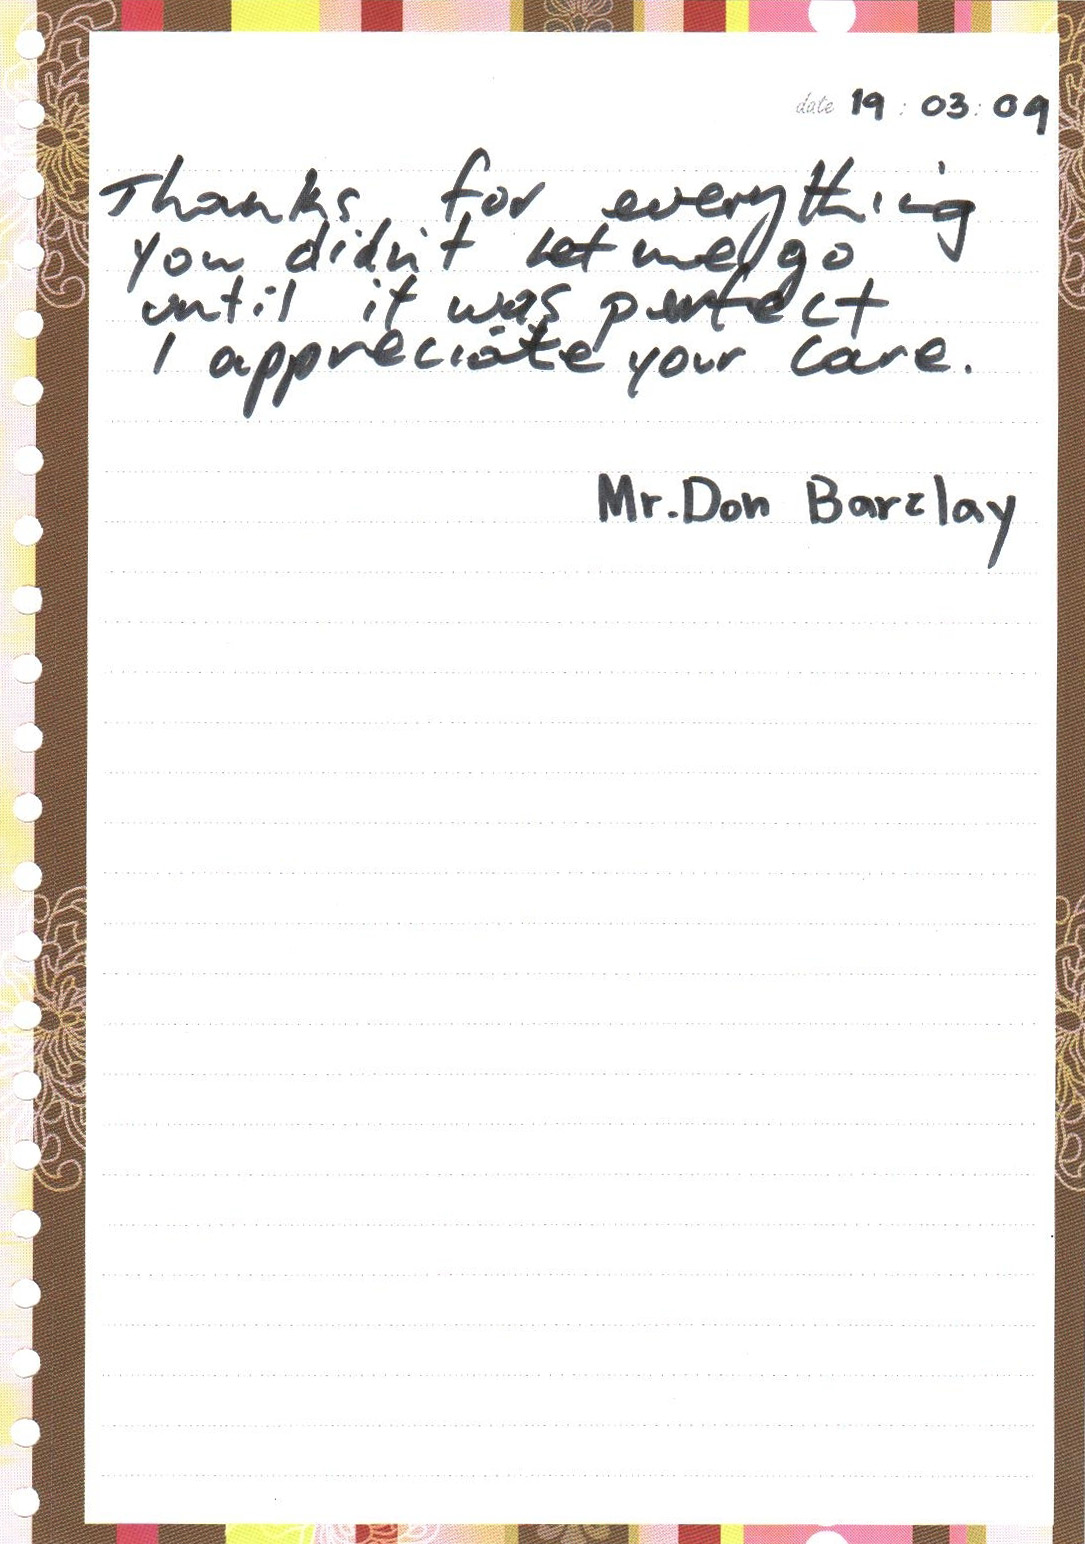 date 19 : 03 : 09
Thanks for everything
you didn't let me go
until it was perfect
I appreciate your care.
Mr. Don Barclay